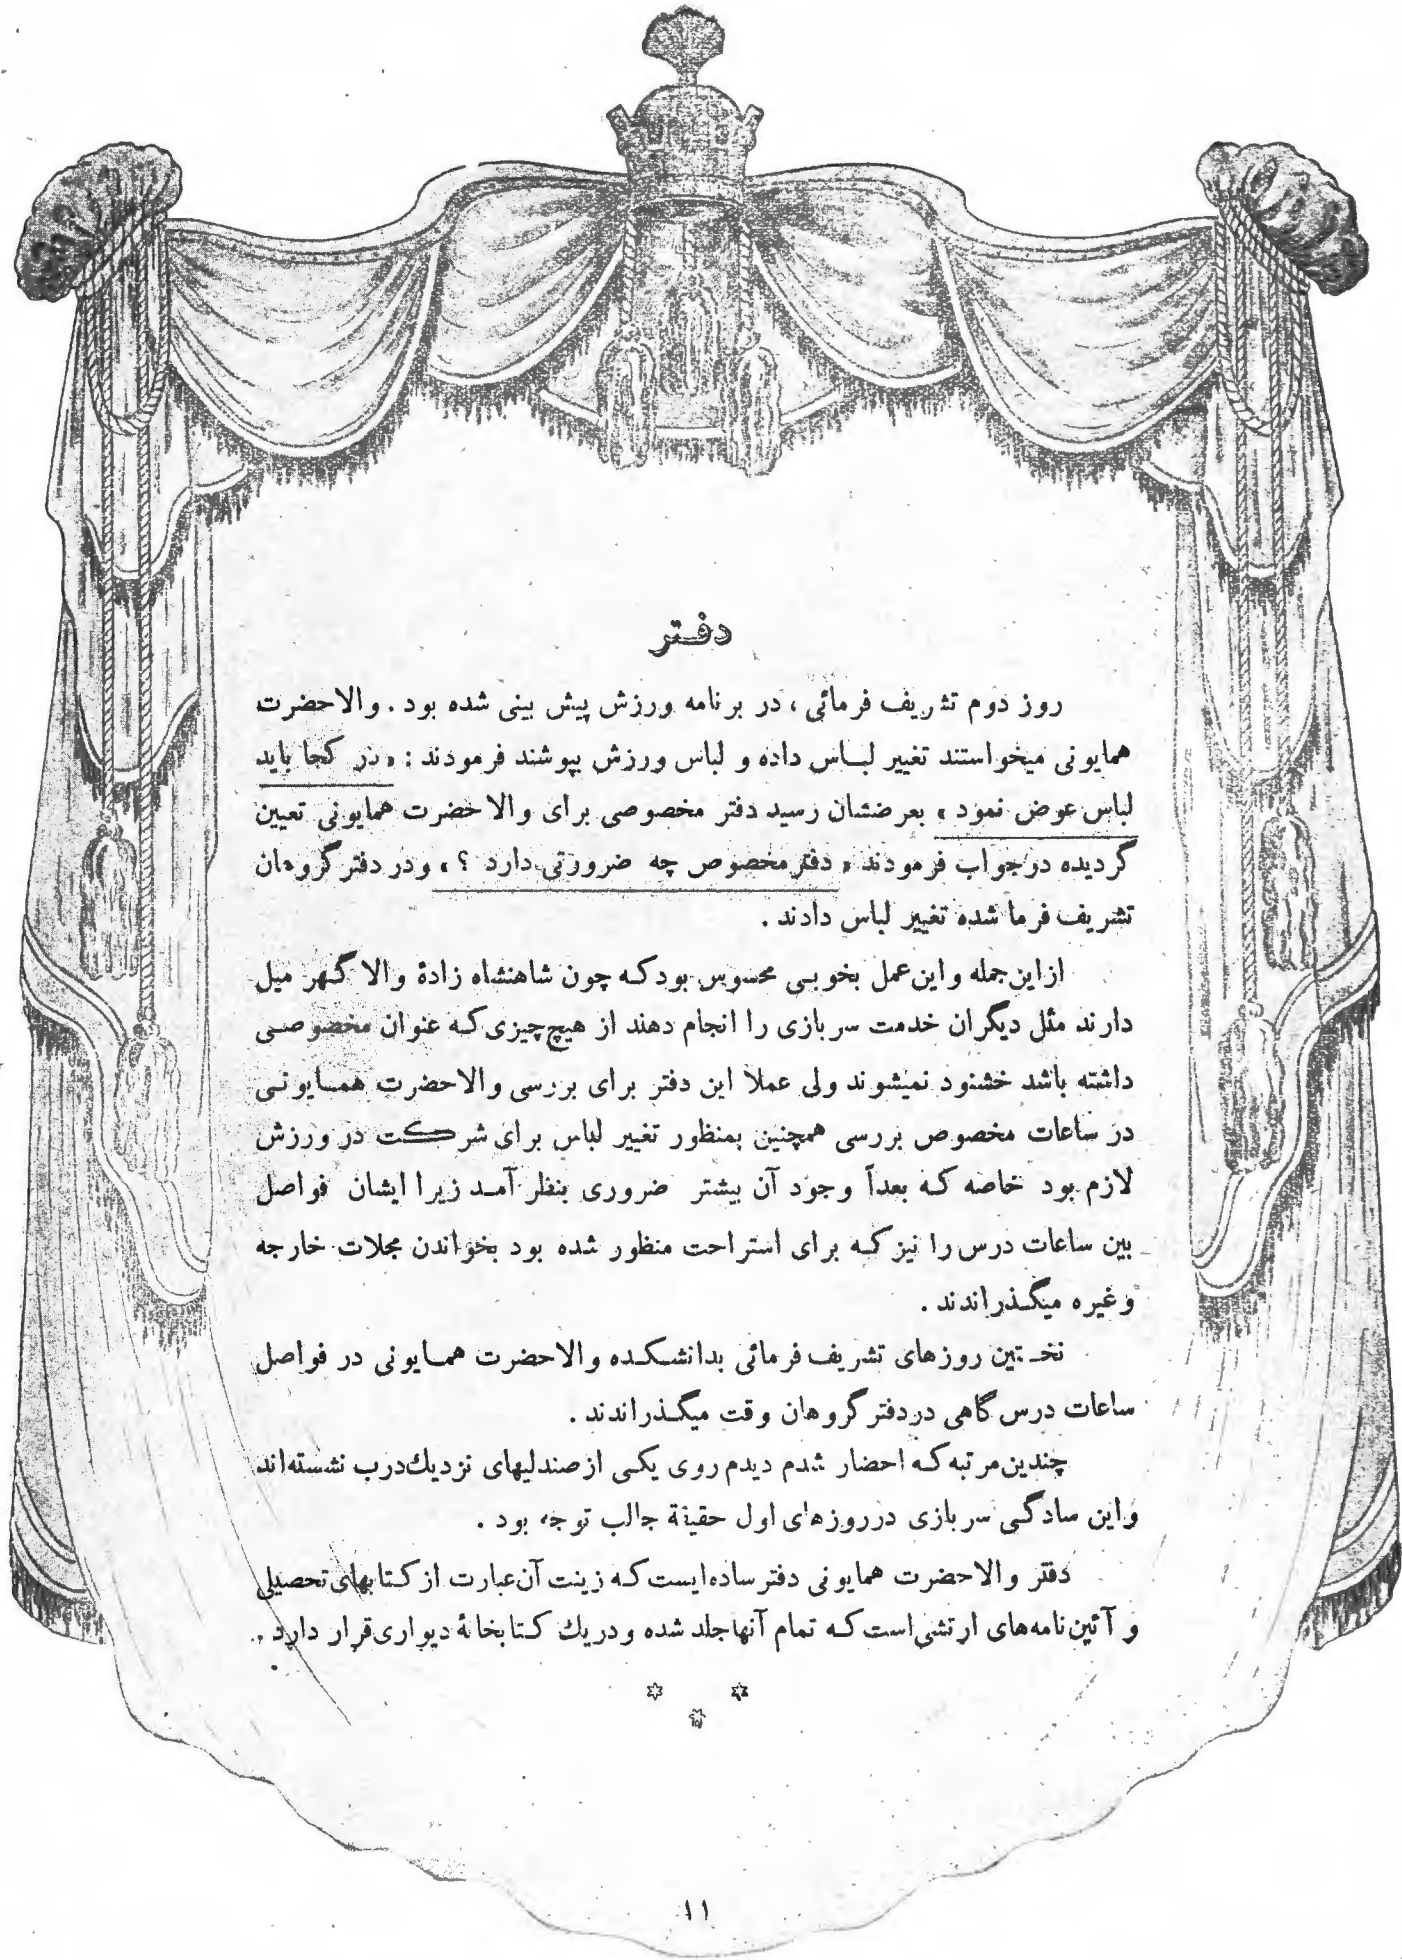 دفـتر
روز دوم تشریف فرمائی ، در برنامه ورزش پیش بینی شده بود . والاحضرت
همایونی میخواستند تغییر لبـاس داده و لباس ورزش بپوشند فرمودند : « در کجا باید
لباس عوض نمود » بعرضشان رسید دفتر مخصوصی برای والاحضرت همایونی تعیین
گردیده درجواب فرمودند « دفتر مخصوص چه ضرورتی دارد ؟ » ودر دفتر گروهان
تشریف فرما شده تغییر لباس دادند .
ازاین جمله واین عمل بخوبـی محسوس بودکـه چون شاهنشاه زادهٔ والا گـهر میل
دارند مثل دیگران خدمت سربازی را انجام دهند از هیچ چیزی کـه عنوان مخصوصـی
داشته باشد خشنود نمیشوند ولی عملا این دفتر برای بررسی والاحضرت همـایونـی
در ساعات مخصوص بررسی همچنین بمنظور تغییر لباس برای شرکت در ورزش
لازم بود خاصه کـه بعداً وجود آن بیشتر ضروری بنظر آمـد زیرا ایشان فواصل
بین ساعات درس را نیز کـه برای استراحت منظور شده بود بخواندن مجلات خارجه
وغیره میگـذراندند .
نخـستین روزهای تشریف فرمائی بدانشـکـده والاحضرت همـایونی در فواصل
ساعات درس گاهی دردفتر گروهان وقت میگـذراندند .
چندین مرتبه کـه احضار شدم دیدم روی یکـی ازصندلیهای نزدیك درب نشسته‌اند
واین سادگـی سربازی درروزهای اول حقیقة جالب توجه بود .
دفتر والاحضرت همایونی دفتر ساده‌ایست کـه زینت آن عبارت از کـتابهای تحصیلی
و آئین نامه‌های ارتشی است کـه تمام آنها جلد شده ودریك کـتابخانهٔ دیواری قرار دارد .
۱۱